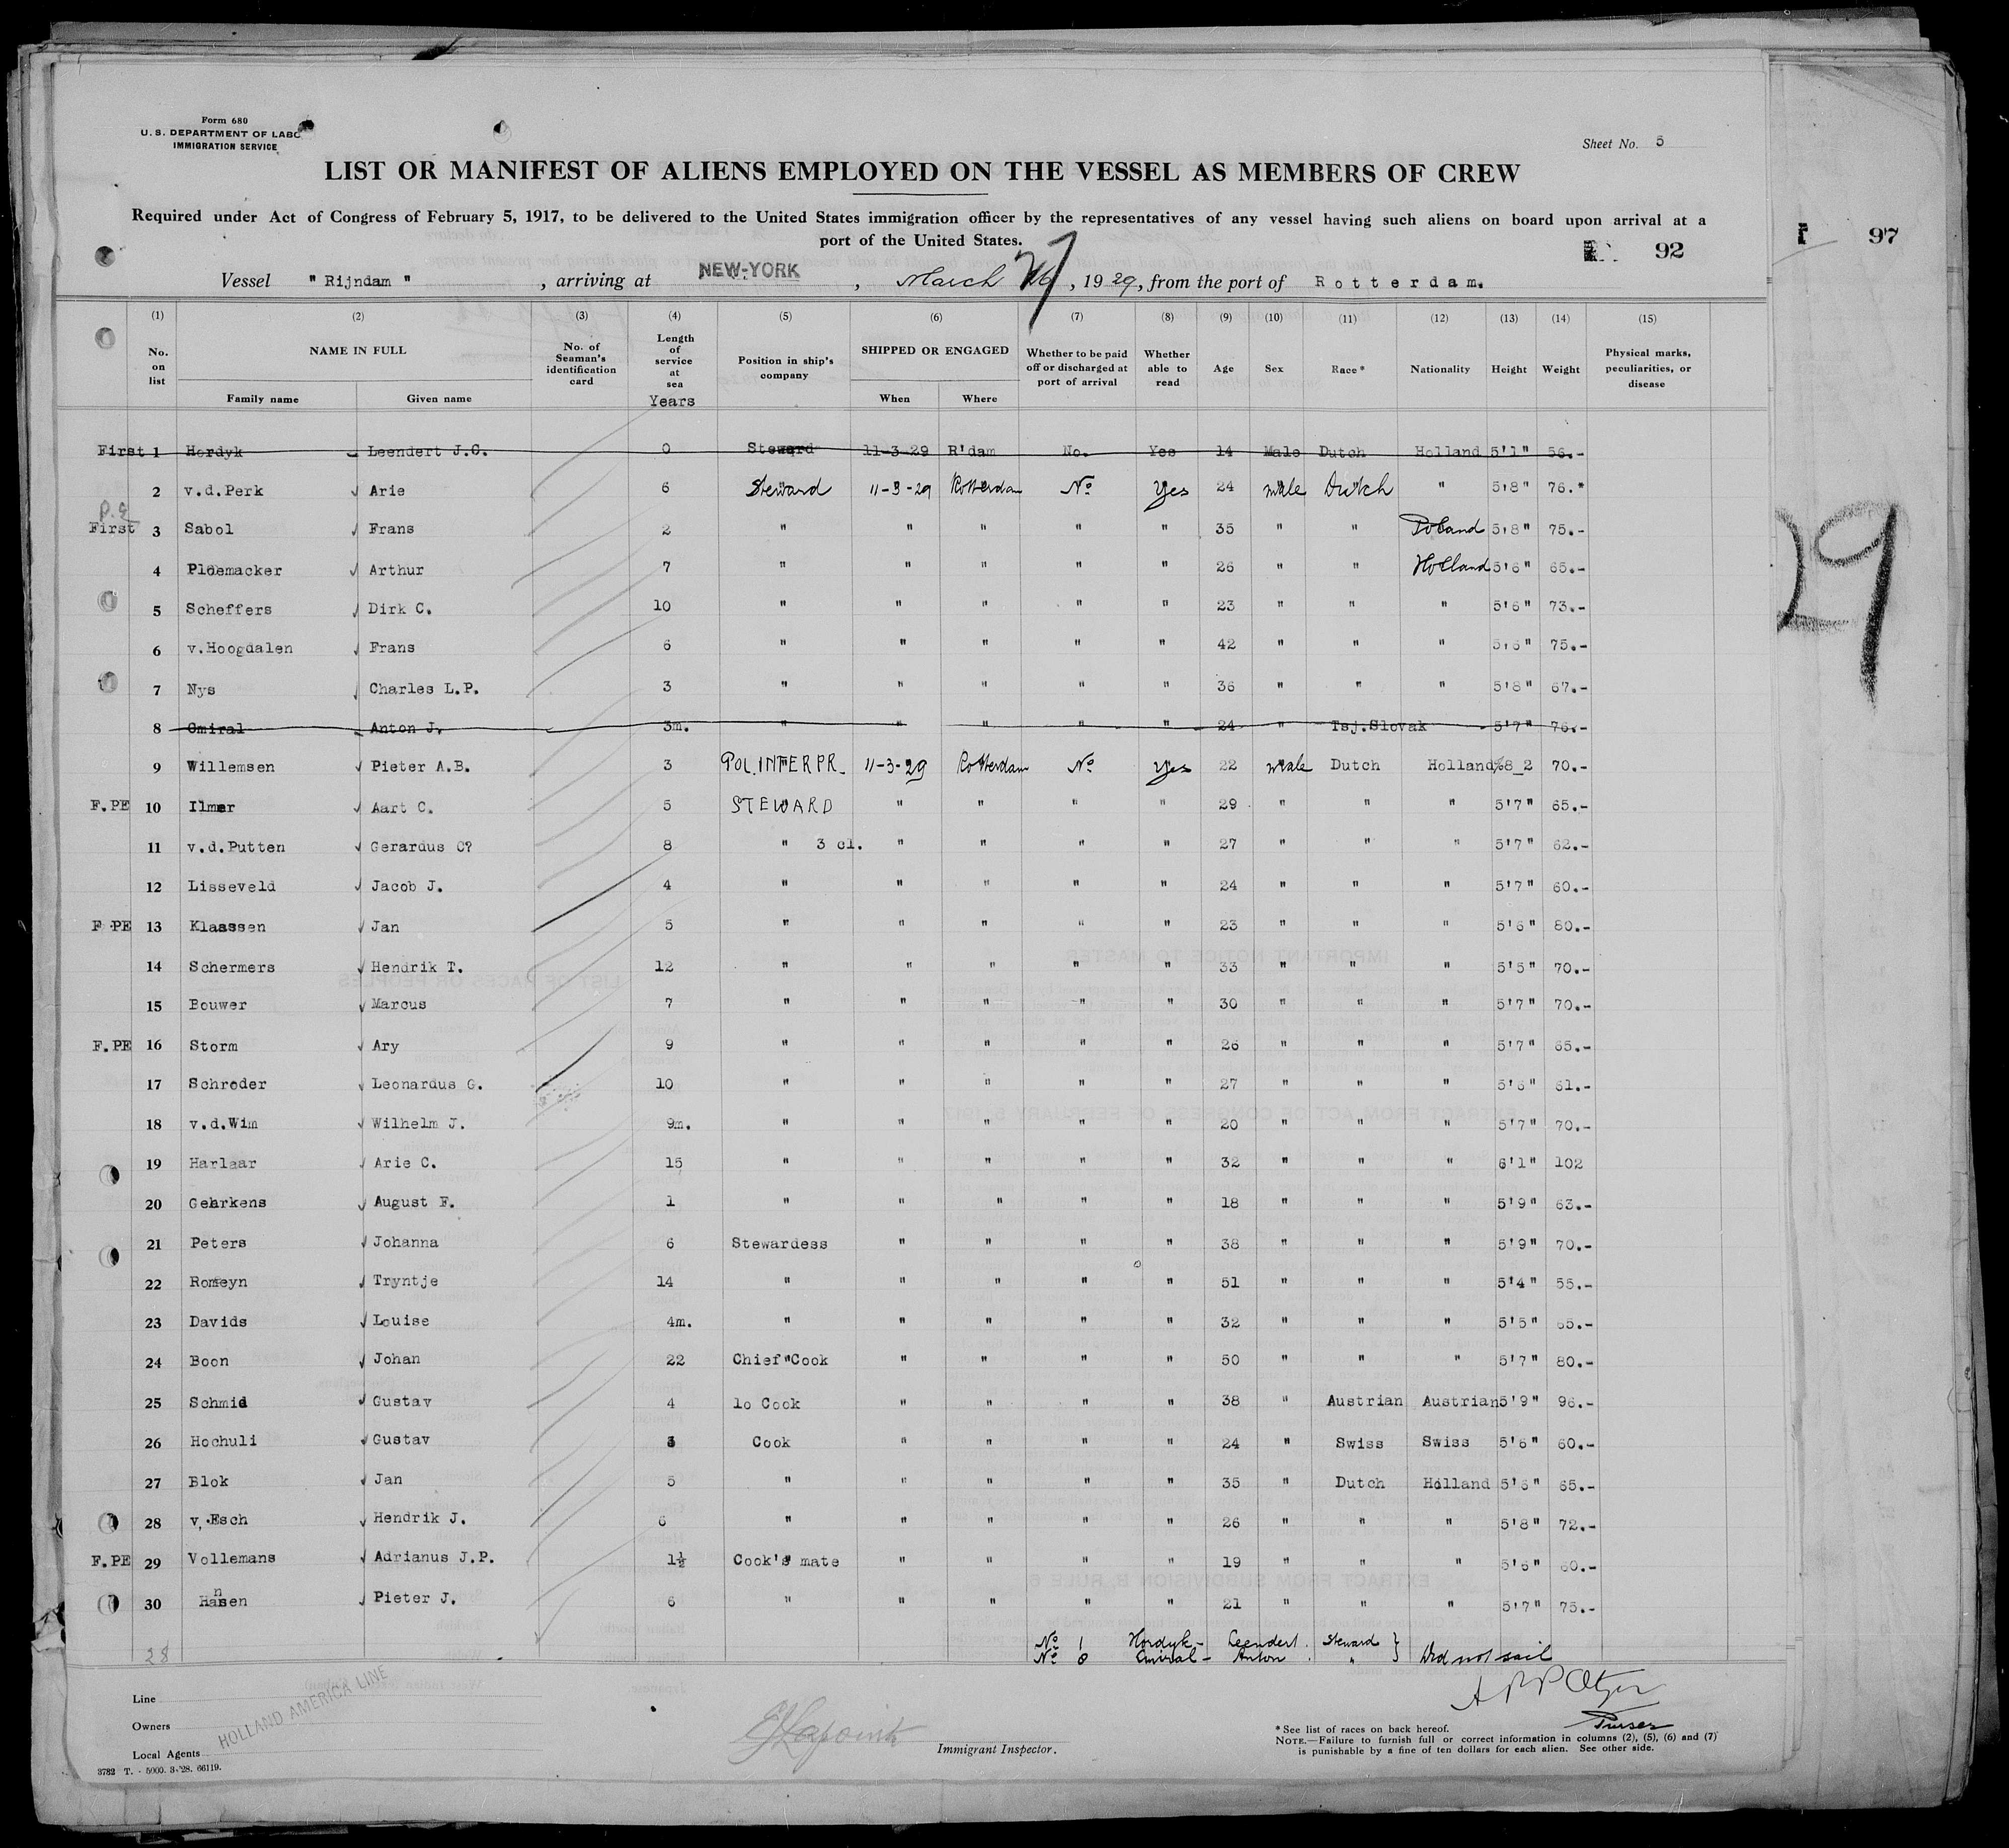 Form 680
U. S. DEPARTMENT OF LABO
IMMIGRATION SERVICE
Sheet No. 5
LIST OR MANIFEST OF ALIENS EMPLOYED ON THE VESSEL AS MEMBERS OF CREW
Required under Act of Congress of February 5, 1917, to be delivered to the United States immigration officer by the representatives of any vessel having such aliens on board upon arrival at a
port of the United States.
92
97
Vessel "Rijndam", arriving at NEW-YORK, March 1929, from the port of Rotterdam.
29
(1) (2) (3) (4) (5) (6) (7) (8) (9) (10) (11) (12) (13) (14) (15)
No. on list NAME IN FULL Family name Given name No. of Seaman's identification card Length of service at sea Years Position in ship's company SHIPPED OR ENGAGED When Where Whether to be paid off or discharged at port of arrival Whether able to read Age Sex Race* Nationality Height Weight Physical marks, peculiarities, or disease
First 1 Hordyk Leendert J.C. 0 Steward 11-3-29 R'dam No. Yes 14 Male Dutch Holland 5'1" 56.-
2 v.d.Perk Arie 6 Steward 11-3-29 Rotterdam No Yes 24 male Dutch " 5'8" 76.*
First 3 Sabol Frans 2 " " " " " 35 " " Poland 5'8" 75.-
4 Ploemacker Arthur 7 " " " " " 26 " " Holland 5'6" 65.-
5 Scheffers Dirk C. 10 " " " " " 23 " " " 5'6" 73.-
6 v.Hoogdalen Frans 6 " " " " " 42 " " " 5'6" 75.-
7 Nys Charles L.P. 3 " " " " " 36 " " " 5'8" 67.-
8 Cmiral Anton J. 3m. " " " " " 24 " Tsj.Slovak 5'7" 76.-
9 Willemsen Pieter A.B. 3 POL.INTERPR. 11-3-29 Rotterdam No Yes 22 male Dutch Holland 70.-
F.PE 10 Ilmer Aart C. 5 STEWARD " " " " 29 " " " 5'7" 65.-
11 v.d.Putten Gerardus C? 8 " 3 cl. " " " " 27 " " " 5'7" 62.-
12 Lisseveld Jacob J. 4 " " " " " 24 " " " 5'7" 60.-
F.PE 13 Klaassen Jan 5 " " " " " 23 " " " 5'6" 80.-
14 Schermers Hendrik T. 12 " " " " " 33 " " " 5'5" 70.-
15 Bouwer Marcus 7 " " " " " 30 " " " 5'7" 70.-
F.PE 16 Storm Ary 9 " " " " " 26 " " " 5'7" 65.-
17 Schroder Leonardus G. 10 " " " " " 27 " " " 5'6" 61.-
18 v.d.Wim Wilhelm J. 9m. " " " " " 20 " " " 5'7" 70.-
19 Harlaar Arie C. 15 " " " " " 32 " " " 6'1" 102
20 Gehrkens August F. 1 " " " " " 18 " " " 5'9" 63.-
21 Peters Johanna 6 Stewardess " " " " 38 " " " 5'9" 70.-
22 Romeyn Tryntje 14 " " " " " 51 " " " 5'4" 55.-
23 Davids Louise 4m. " " " " " 32 " " " 5'5" 65.-
24 Boon Johan 22 Chief Cook " " " " 50 " " " 5'7" 80.-
25 Schmid Gustav 4 1o Cook " " " " 38 " Austrian Austrian 5'9" 96.-
26 Hochuli Gustav 3 Cook " " " " 24 " Swiss Swiss 5'6" 60.-
27 Blok Jan 5 " " " " " 35 " Dutch Holland 5'6" 65.-
28 v.Esch Hendrik J. 6 " " " " " 26 " " " 5'8" 72.-
F.PE 29 Vollemans Adrianus J.P. 1½ Cook's mate " " " " 19 " " " 5'6" 60.-
30 Hansen Pieter J. 6 " " " " " 21 " " " 5'7" 75.-
28
No 1 Hordyk - Leendert. Steward } Did not sail
No 8 Cmiral - Anton. "
Purser
Line
Owners
Local Agents
HOLLAND AMERICA LINE
Immigrant Inspector.
* See list of races on back hereof.
NOTE.—Failure to furnish full or correct information in columns (2), (5), (6) and (7)
is punishable by a fine of ten dollars for each alien. See other side.
3782 T. - 5000. 3-'28. 66119.